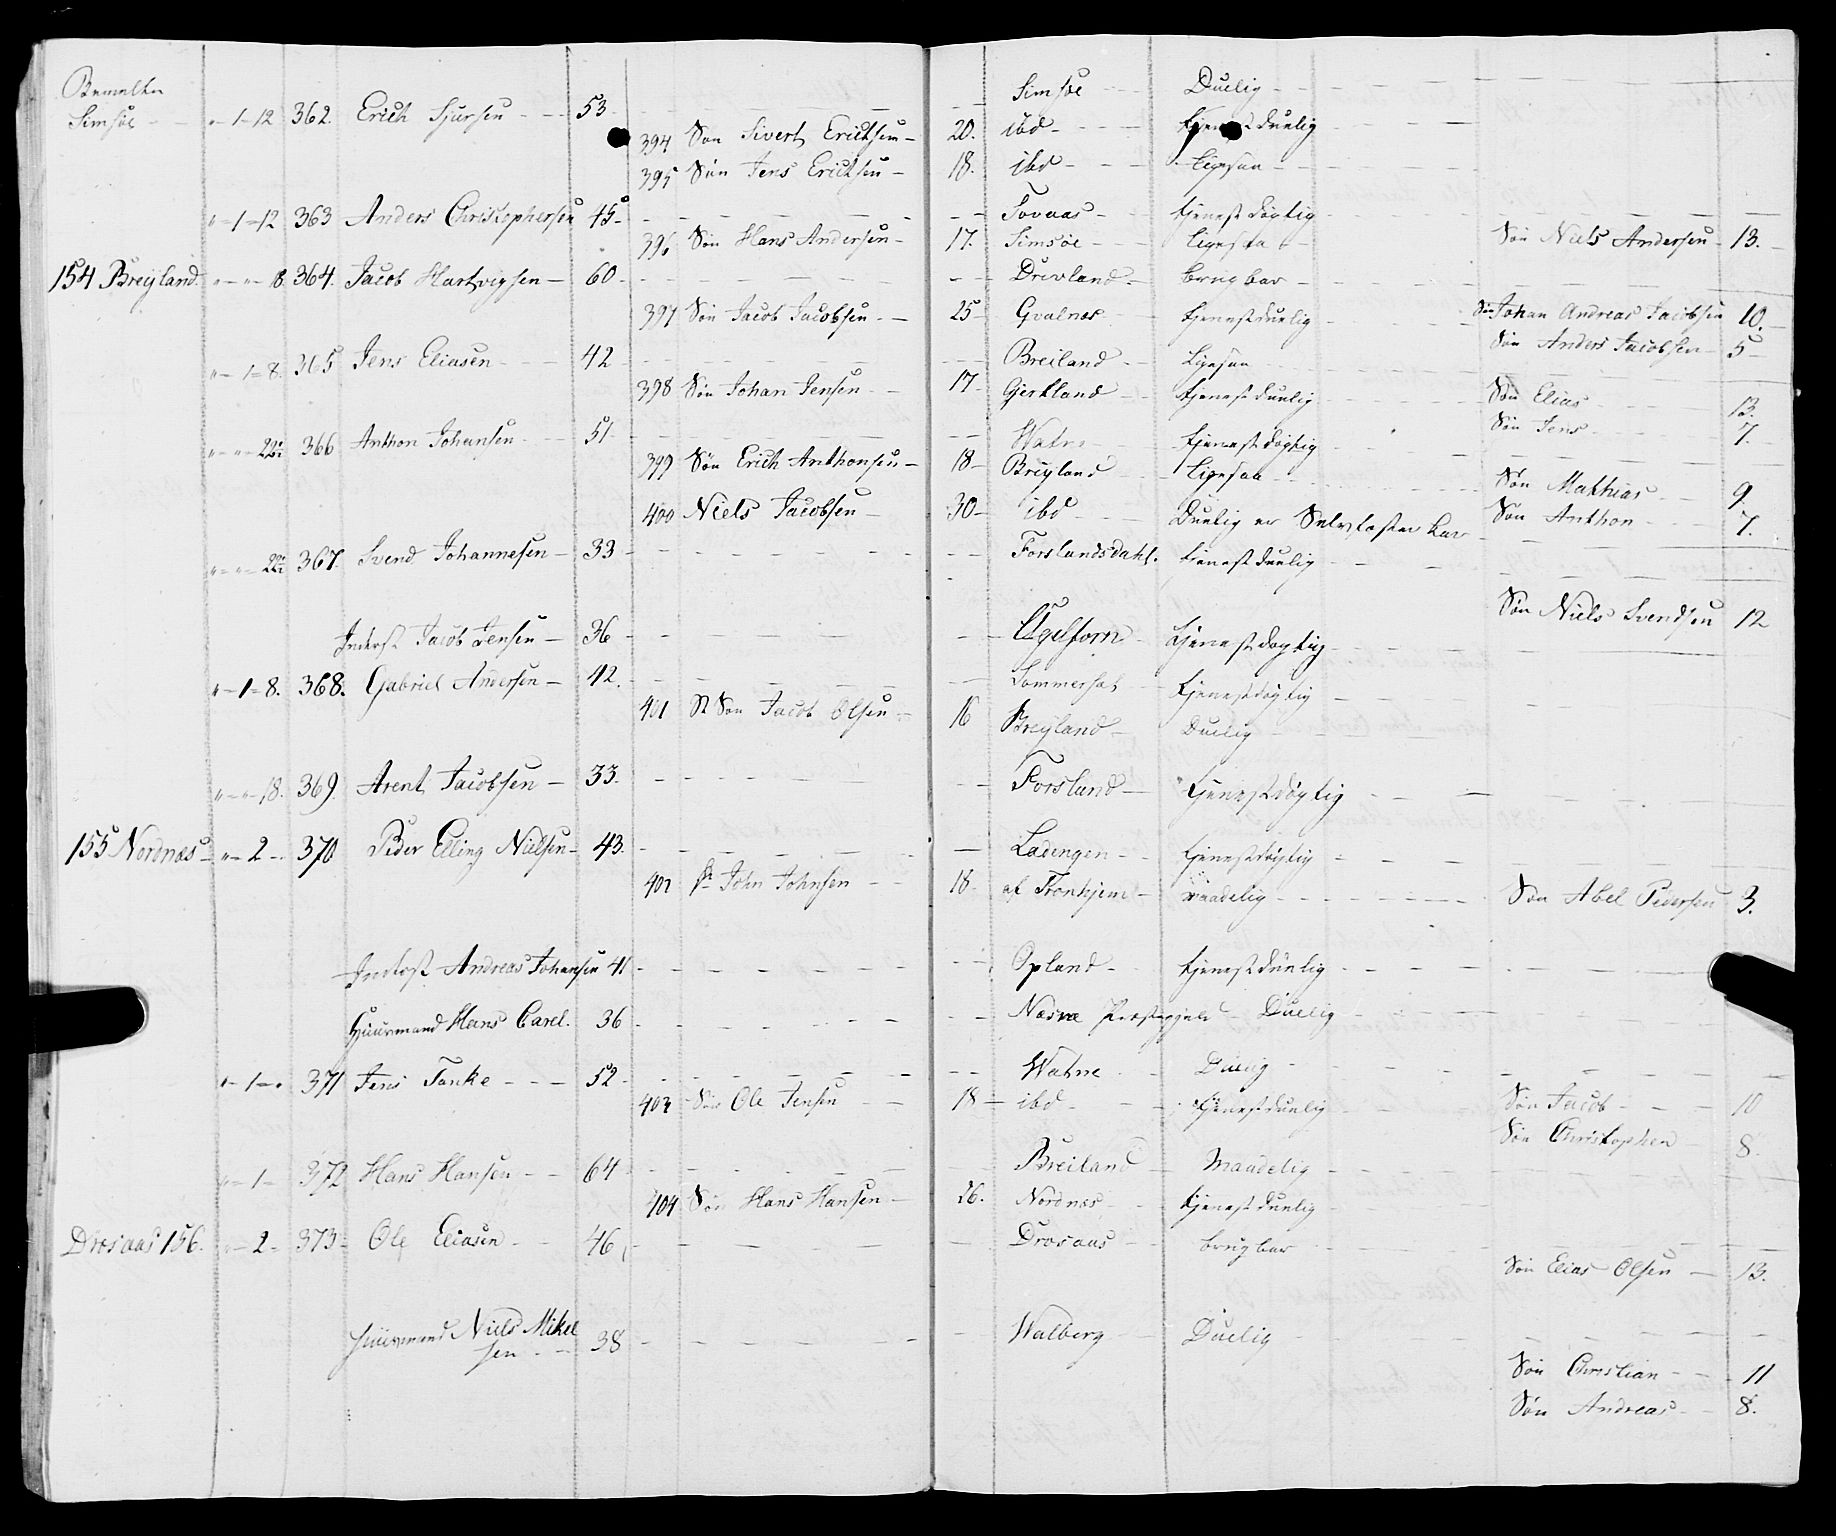 Bemelte
Simsøe " 1 12 362. Erich Sjursen 53 Simsøe Duelig
394 Søn Sivert Erichsen 20. ibd tjenestduelig
395 Søn Jens Erichsen 18. ibd Ligesaa
" 1 12 363 Anders Christophersen 45 Tovaas tjenestdøgtig
396 Søn Hans Andersen 17. Simsøe Ligesaa Søn Niels Andersen 13.
154 Breyland " " 18. 364. Jacob Hartvigsen 60 Drevland brugbar
397 Søn Jacob Jacobsen 25 Gvalnæs tjenestduelig Søn Johan Andreas Jacobsen 10.
Søn Anders Jacobsen 5
" 1 8. 365 Jens Eliasen 42 Breiland Ligesaa
398 Søn Johan Jensen 17 Gjerkland tjenestduelig Søn Elias 13.
Søn Jens 7.
" " 22 366 Anthon Johansen 51 Watne tjenestdøgtig
399 Søn Erich Anthonsen 18 Breyland Ligesaa Søn Mathias 9
400 Niels Jacobsen 30 ibd Duelig er Søn Anthon 7.
" " 22 367. Svend Johannesen 33 Forslandsdahl. tjenestduelig
Søn Niels Svendsen 12
Inderst Jacob Jensen 36 tjenestdøgtig
" 1 8. 368. Gabriel Andersen 42. Sommerset tjenestdøgtig
401 St Søn Jacob Olsen 16 Breyland Duelig
" " 18. 369. Arent Jacobsen 33. Forsland tjenestdøgtig
155 Nordnæs " 2 370 Peder Elling Nielsen 43. Ladingen tjenestdøgtig
402 John Johnsen 18 af Tronhjem maadelig Søn Abel Pedersen 3.
Inderst Andreas Johansen 41 Opland tjenestduelig
Huusmand Hans Carel. 36 Næsne Præstegjeld Duelig
" 1 " 371 Jens Tanke 52 Watne Duelig
403 Søn Ole Jensen 18 ibd tjenestduelig Søn Jacob 10
Søn Christopher 8.
" 1 372 Hans Hansen 64 Breiland Maadelig
404 Søn Hans Hansen 26. Nordnæs tjenestduelig
Drosaas 156. " 2 373 Ole Eliasen 46 Drosaas brugbar
Søn Elias Olsen 13.
Huusmand Niels Mikel
sen 38 Walberg Duelig
Søn Christian 11
Søn Andreas 8.